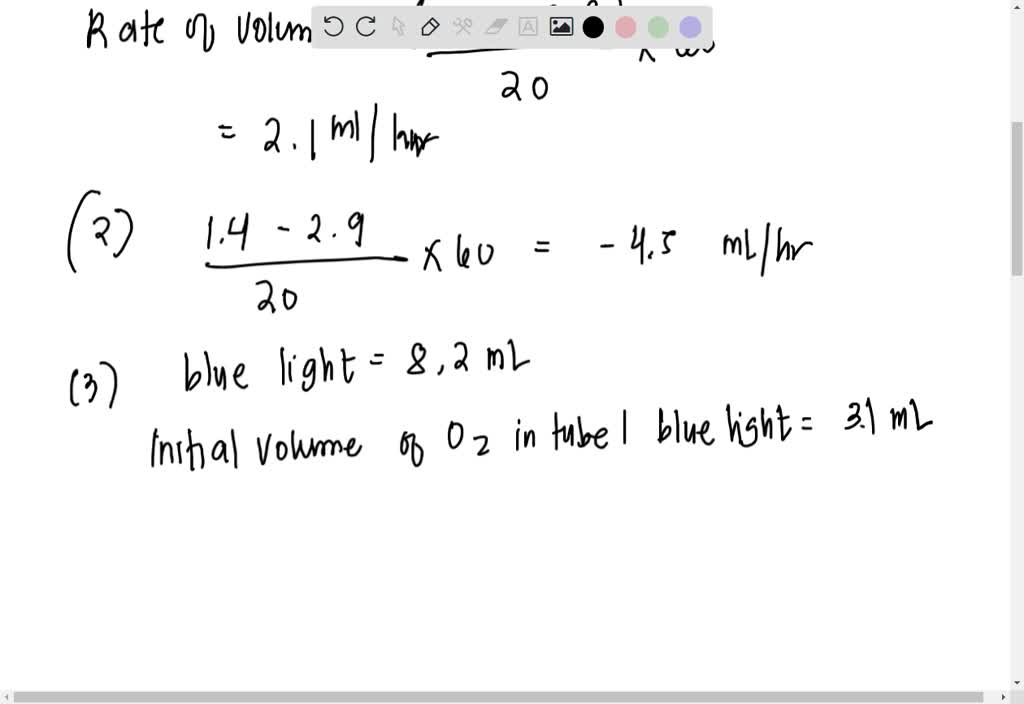 Rate of Volum
20
= 2.1 ml/hr
(2) 1.4 - 2.9 / 20 x 60 = - 4.5 mL/hr
(3) blue light = 8,2 mL
Initial volume of O2 in tube 1 blue light = 3.1 mL